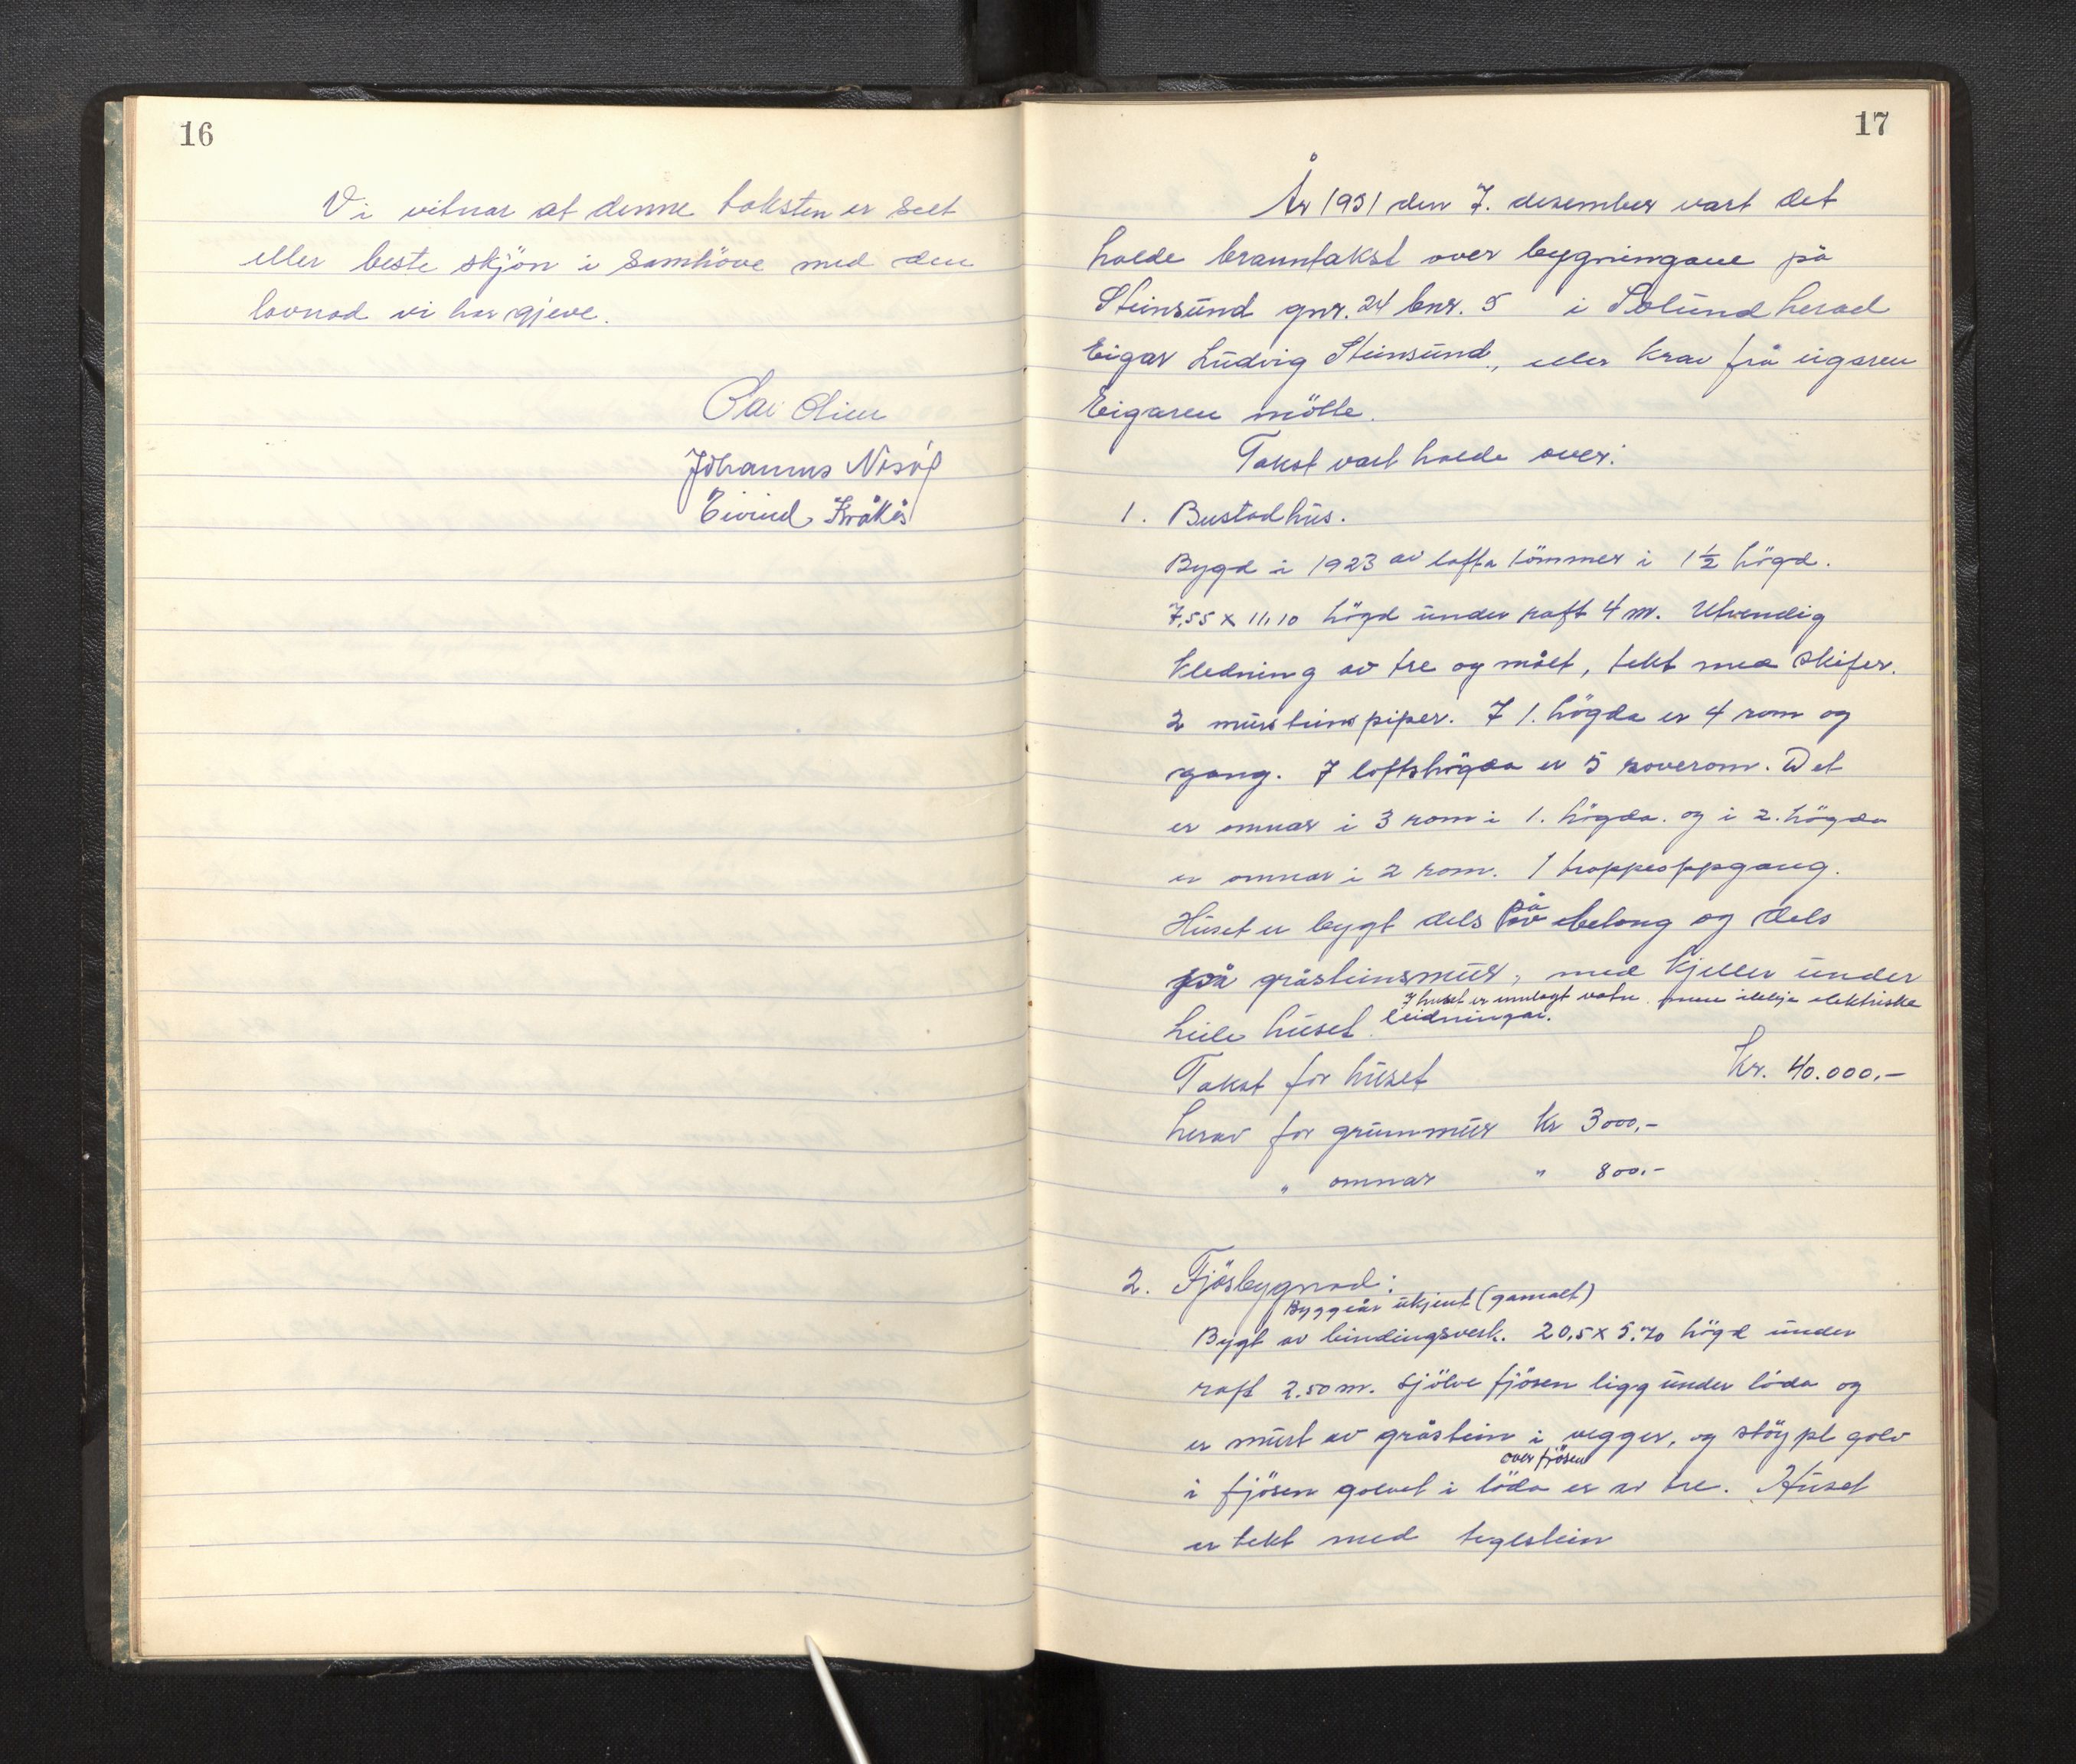 16
Vi vitnar at denne taksten er sett
etter beste skjön i samhöve med den
lovnad vi har gjeve.
Johannes
Eivind Kråkås
17
År 1951 den 7. desember vart det
halde branntakst over bygningane på
Steinsund gnr. 24 bnr. 5 i Solund herad
Eigar Ludvig Steinsund, etter krav frå eigaren
Eigaren mötte.
Takst vart halde over:
1. Bustadhus.
Bygd i 1923 av lafta tömmer i 1½ högd.
7,55 x 11,10 högd under raft 4 m. Utvendig
kledning av tre og målt, tekt med skifer.
2 mursteinspiper. I 1. högda er 4 rom og
gang. I loftshögda er 5 soverom. Det
er omnar i 3 rom i 1. högda. og i 2. högda
er omnar i 2 rom. 1 trappeoppgang.
på
Huset er bygt dels av betong og dels
på gråsteinsmur, med kjeller under
I huset er innlagt vatn men ikkje elektriske
heile huset. leidningar.
Takst for huset Kr. 40.000,-
herav for grunnmur kr 3000,-
" omnar " 800.-
2. Fjösbygnad:
Byggeår ukjent (gamalt)
Bygt av bindingsverk. 20,5 x 5.70 högd under
raft 2.50 m. Sjölve fjösen ligg under löda og
er murt av gråstein i vegger, og stöypt golv
over fjösen
i fjösen golvet i löda er av tre. Huset
er tekt med teglstein